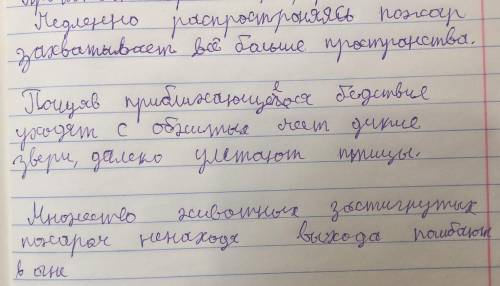 Медленно распространяясь пожар
захватывает всё больше пространства.
Почуяв приближающееося бедствие
уходят с обжитых мест дикие
звери, далеко улетают птицы.
Множество животных застигнутых
пожаром ненаходя выхода погибают
в огне